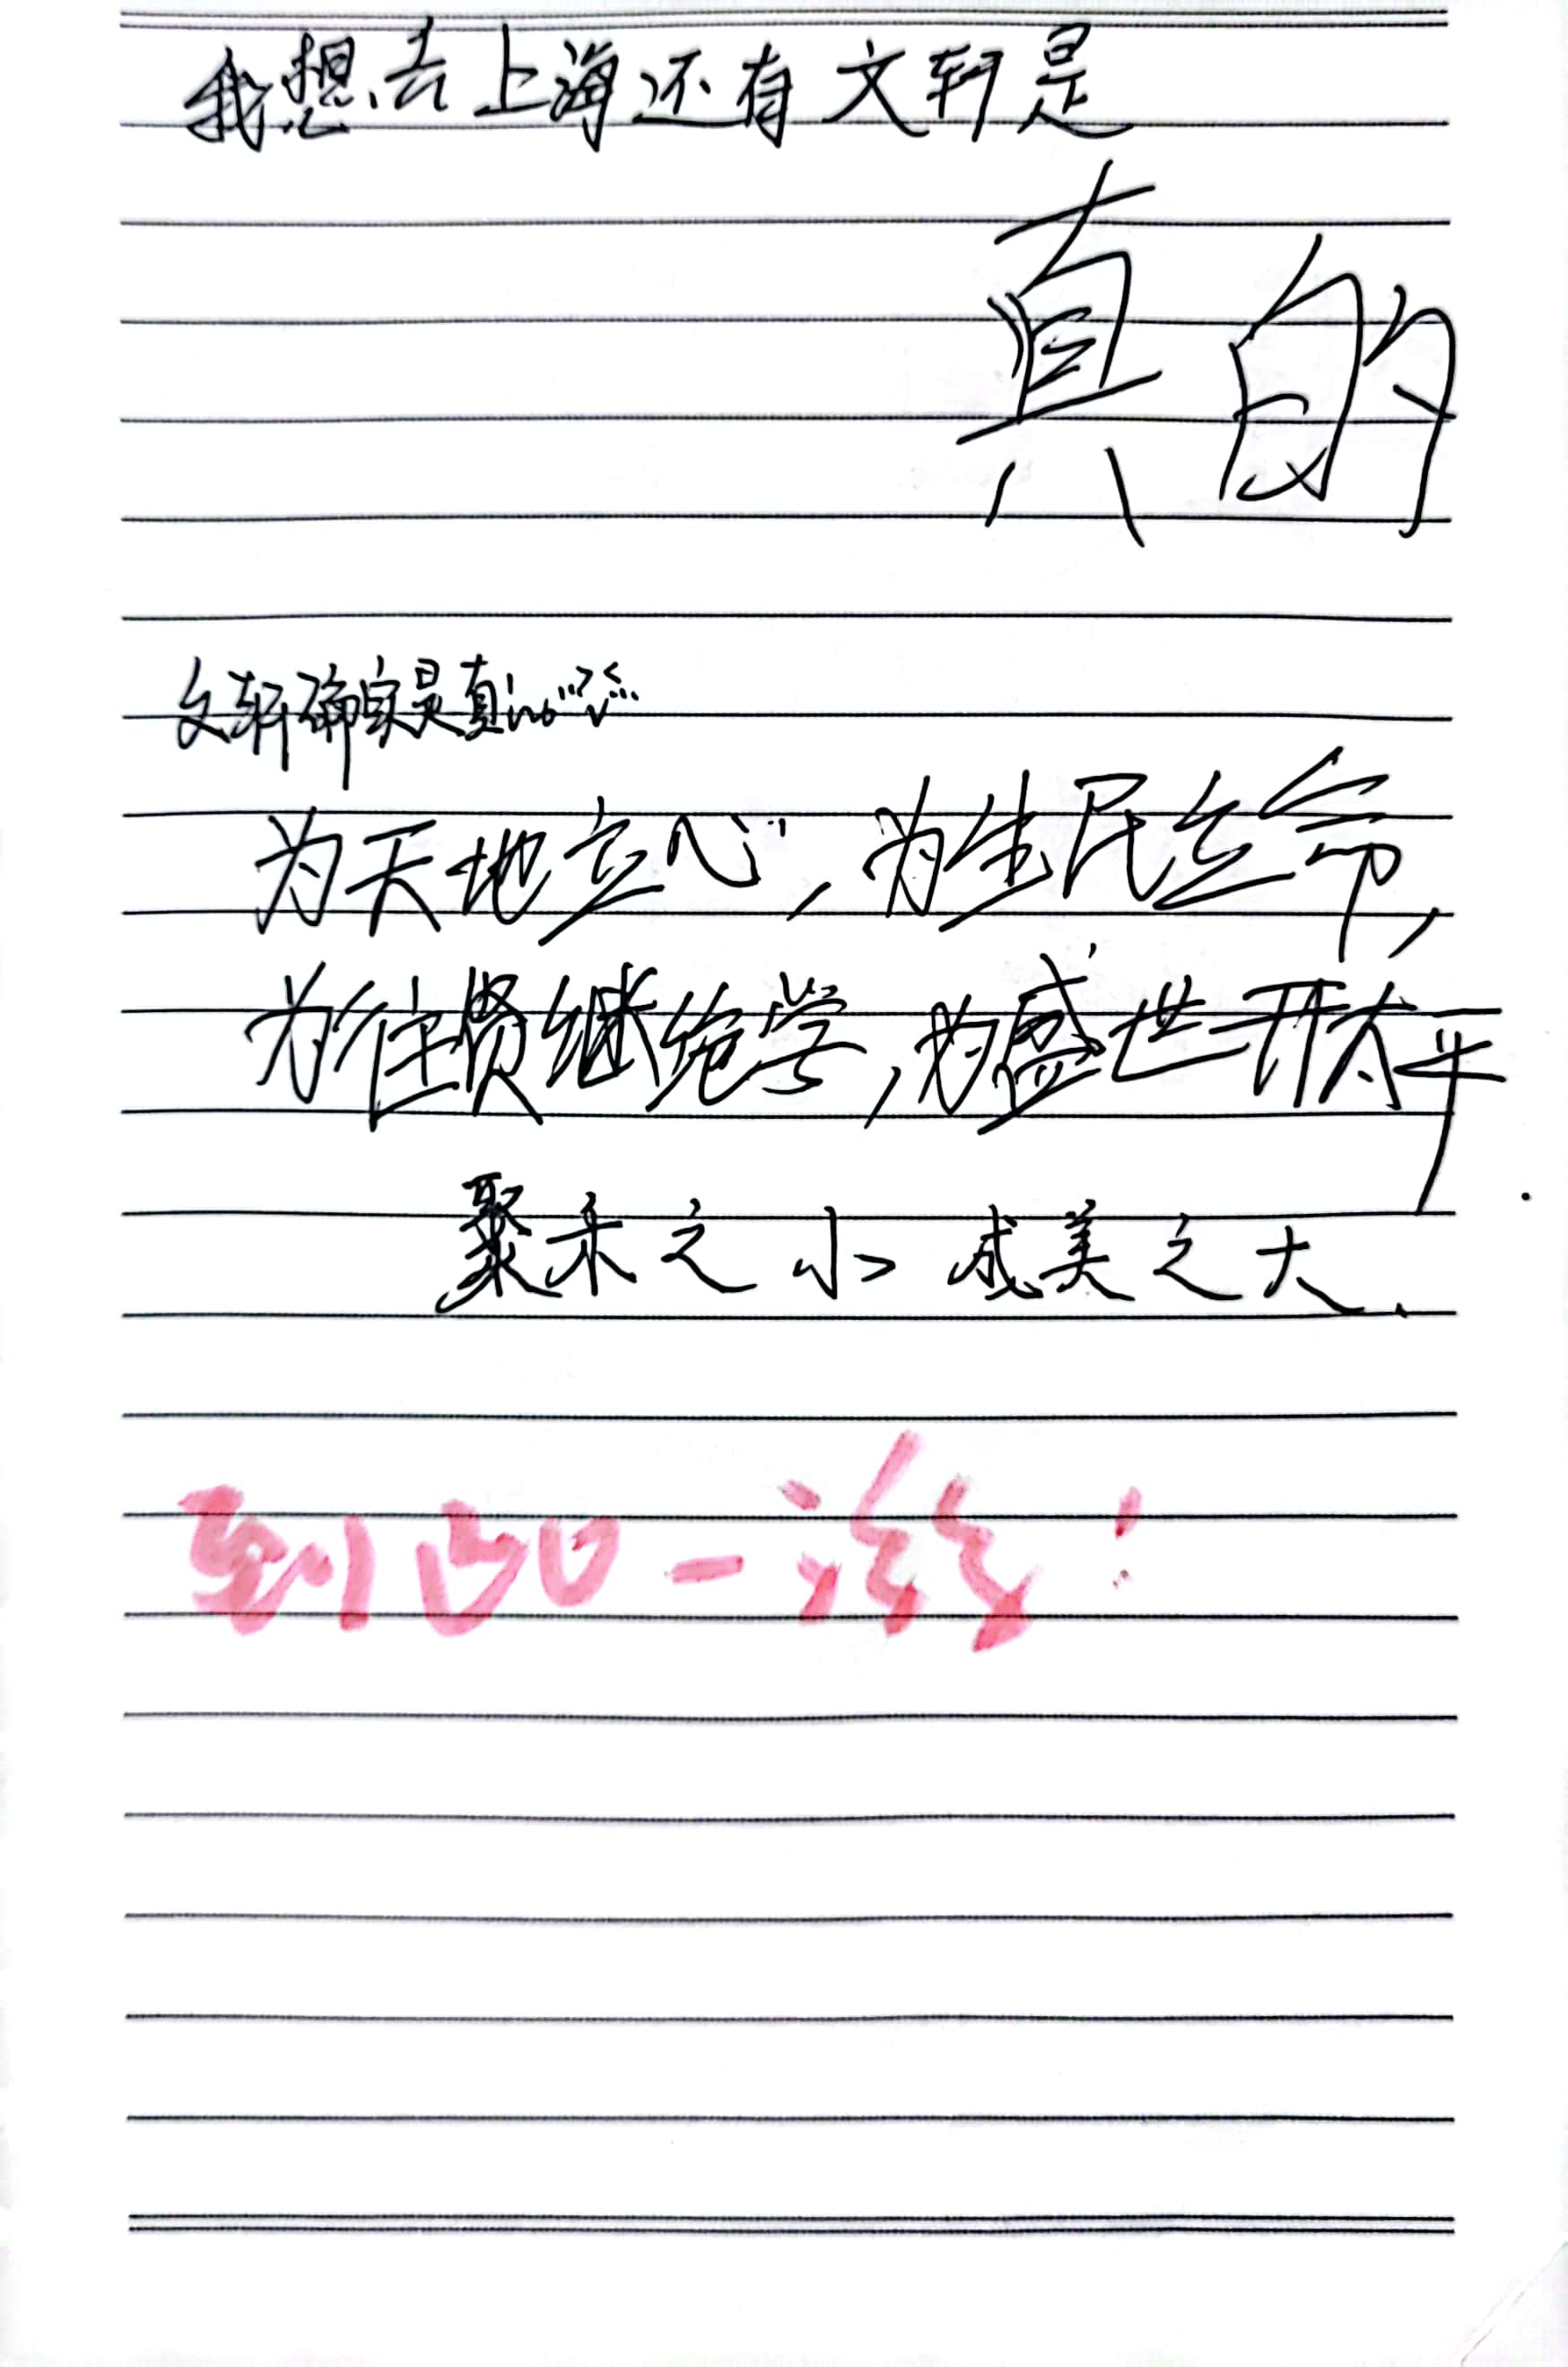 我想去上海还有文轩是
真的
文轩确实是真
为天地立心,为生民立命,
为往贤继绝学,为盛世开太平.
聚禾之小 成美之大.
到此一游!